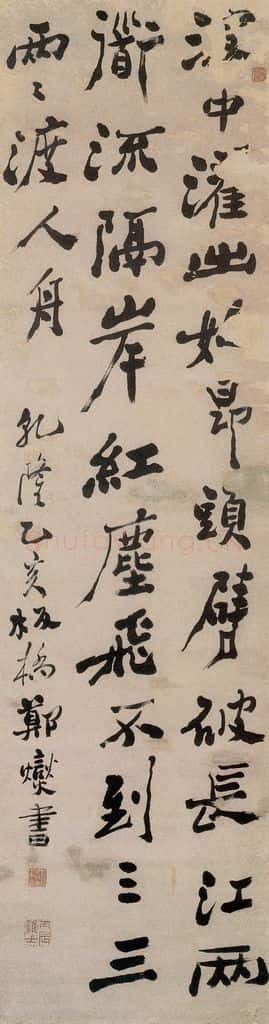 中濯出昂頭劈破長江兩
衜流隔岸紅塵飛不到三三
兩〻渡人舟
乾隆乙亥板橋鄭燮書
丙辰進士